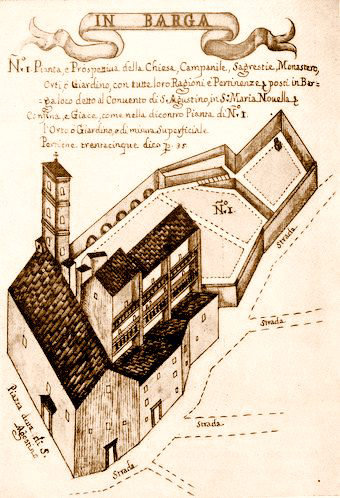 IN BARGA
N.º1. Pianta, e Prospettiva della Chiesa, Campanile, Sagrestie, Monastero,
Orti, ò Giardino, con tutte loro Ragioni e Pertinenze, posti in Bar=
=ga loco detto al Convento di S. Agostino, in S. Maria Novella
Confina, e Giace, come nella dicontro Pianta di N.º1.
l'Orto ò Giardino, è di misura Superficiale
Pertiche trentacinque dico p. 35.
N.º1.
Strada
Strada
Strada
Strada
Piazza detta di S.
Agostino